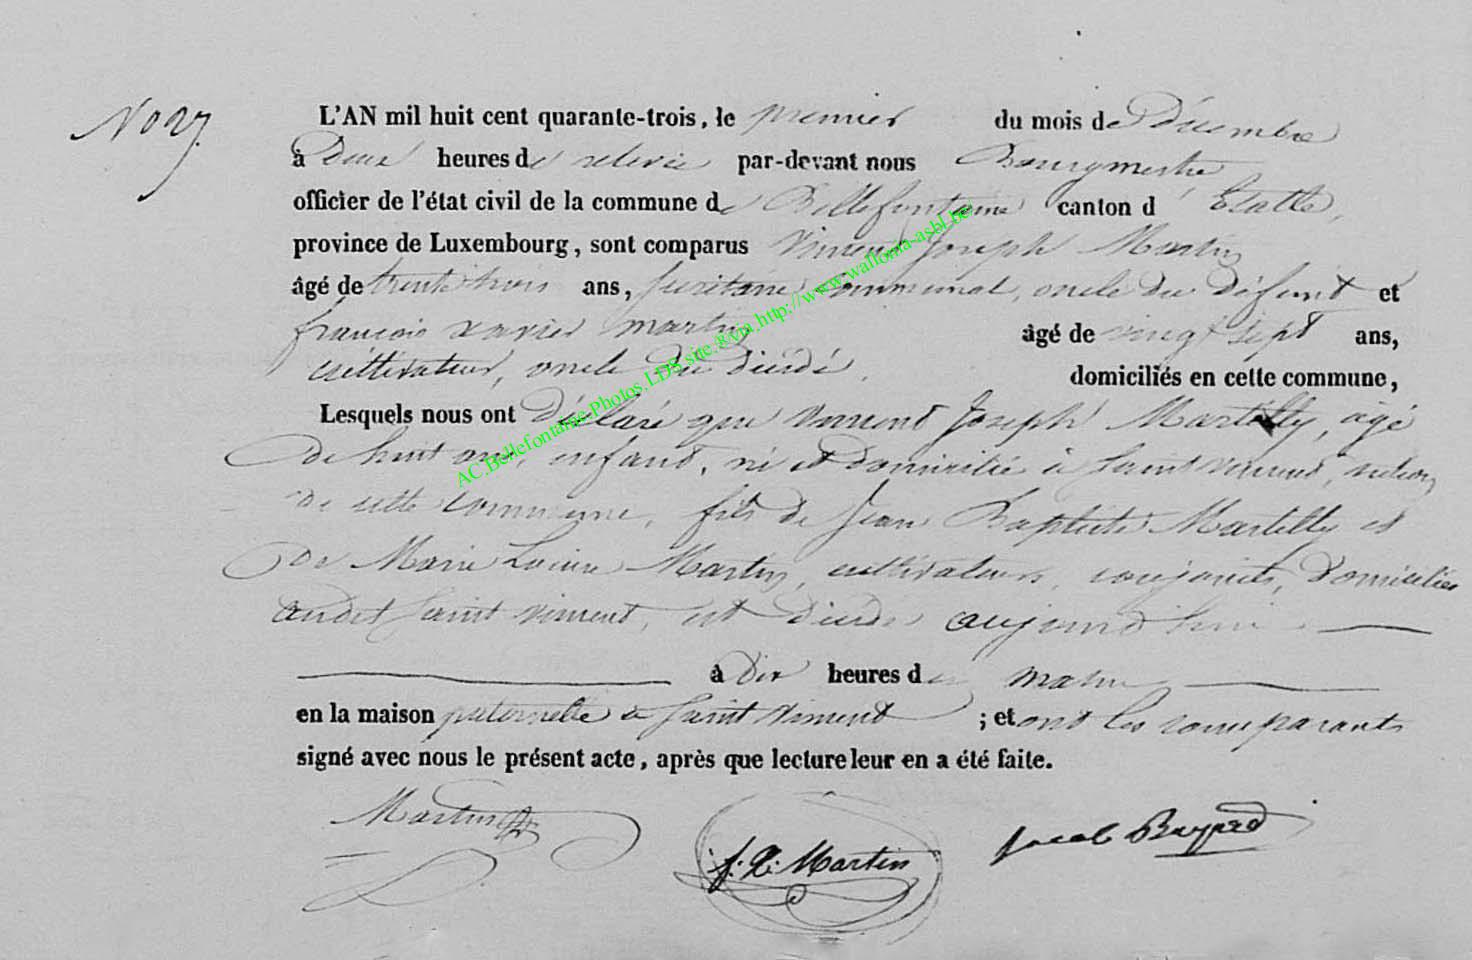 No 27.
L'AN mil huit cent quarante-trois, le premier du mois de Décembre
à Deux heures de relevée par-devant nous Bourgmestre
officier de l'état civil de la commune de Bellefontaine canton d'Etalle,
province de Luxembourg, sont comparus Vincent Joseph Martin
âgé de trente trois ans, secrétaire communal, oncle du défunt et
françois xavier martin âgé de vingt sept ans,
cultivateur, oncle du décédé, domiciliés en cette commune,
Lesquels nous ont Déclaré que vincent Joseph Martilly, âgé
de huit ans, enfant, né et domicilié à saint vincent, section
de cette commune, fils de Jean Baptiste Martilly et
de Marie Louise Martin, cultivateurs, conjoints, Domiciliés
audit saint vincent, est décédé aujourd'hui
à Dix heures du matin
en la maison paternelle à saint vincent ; et ont les comparants
signé avec nous le présent acte, après que lecture leur en a été faite.
Martin
f. X. Martin
Jacob
AC.Bellefontaine.Photos.LDS.site.®via.http://www.wallonia-asbl.be/